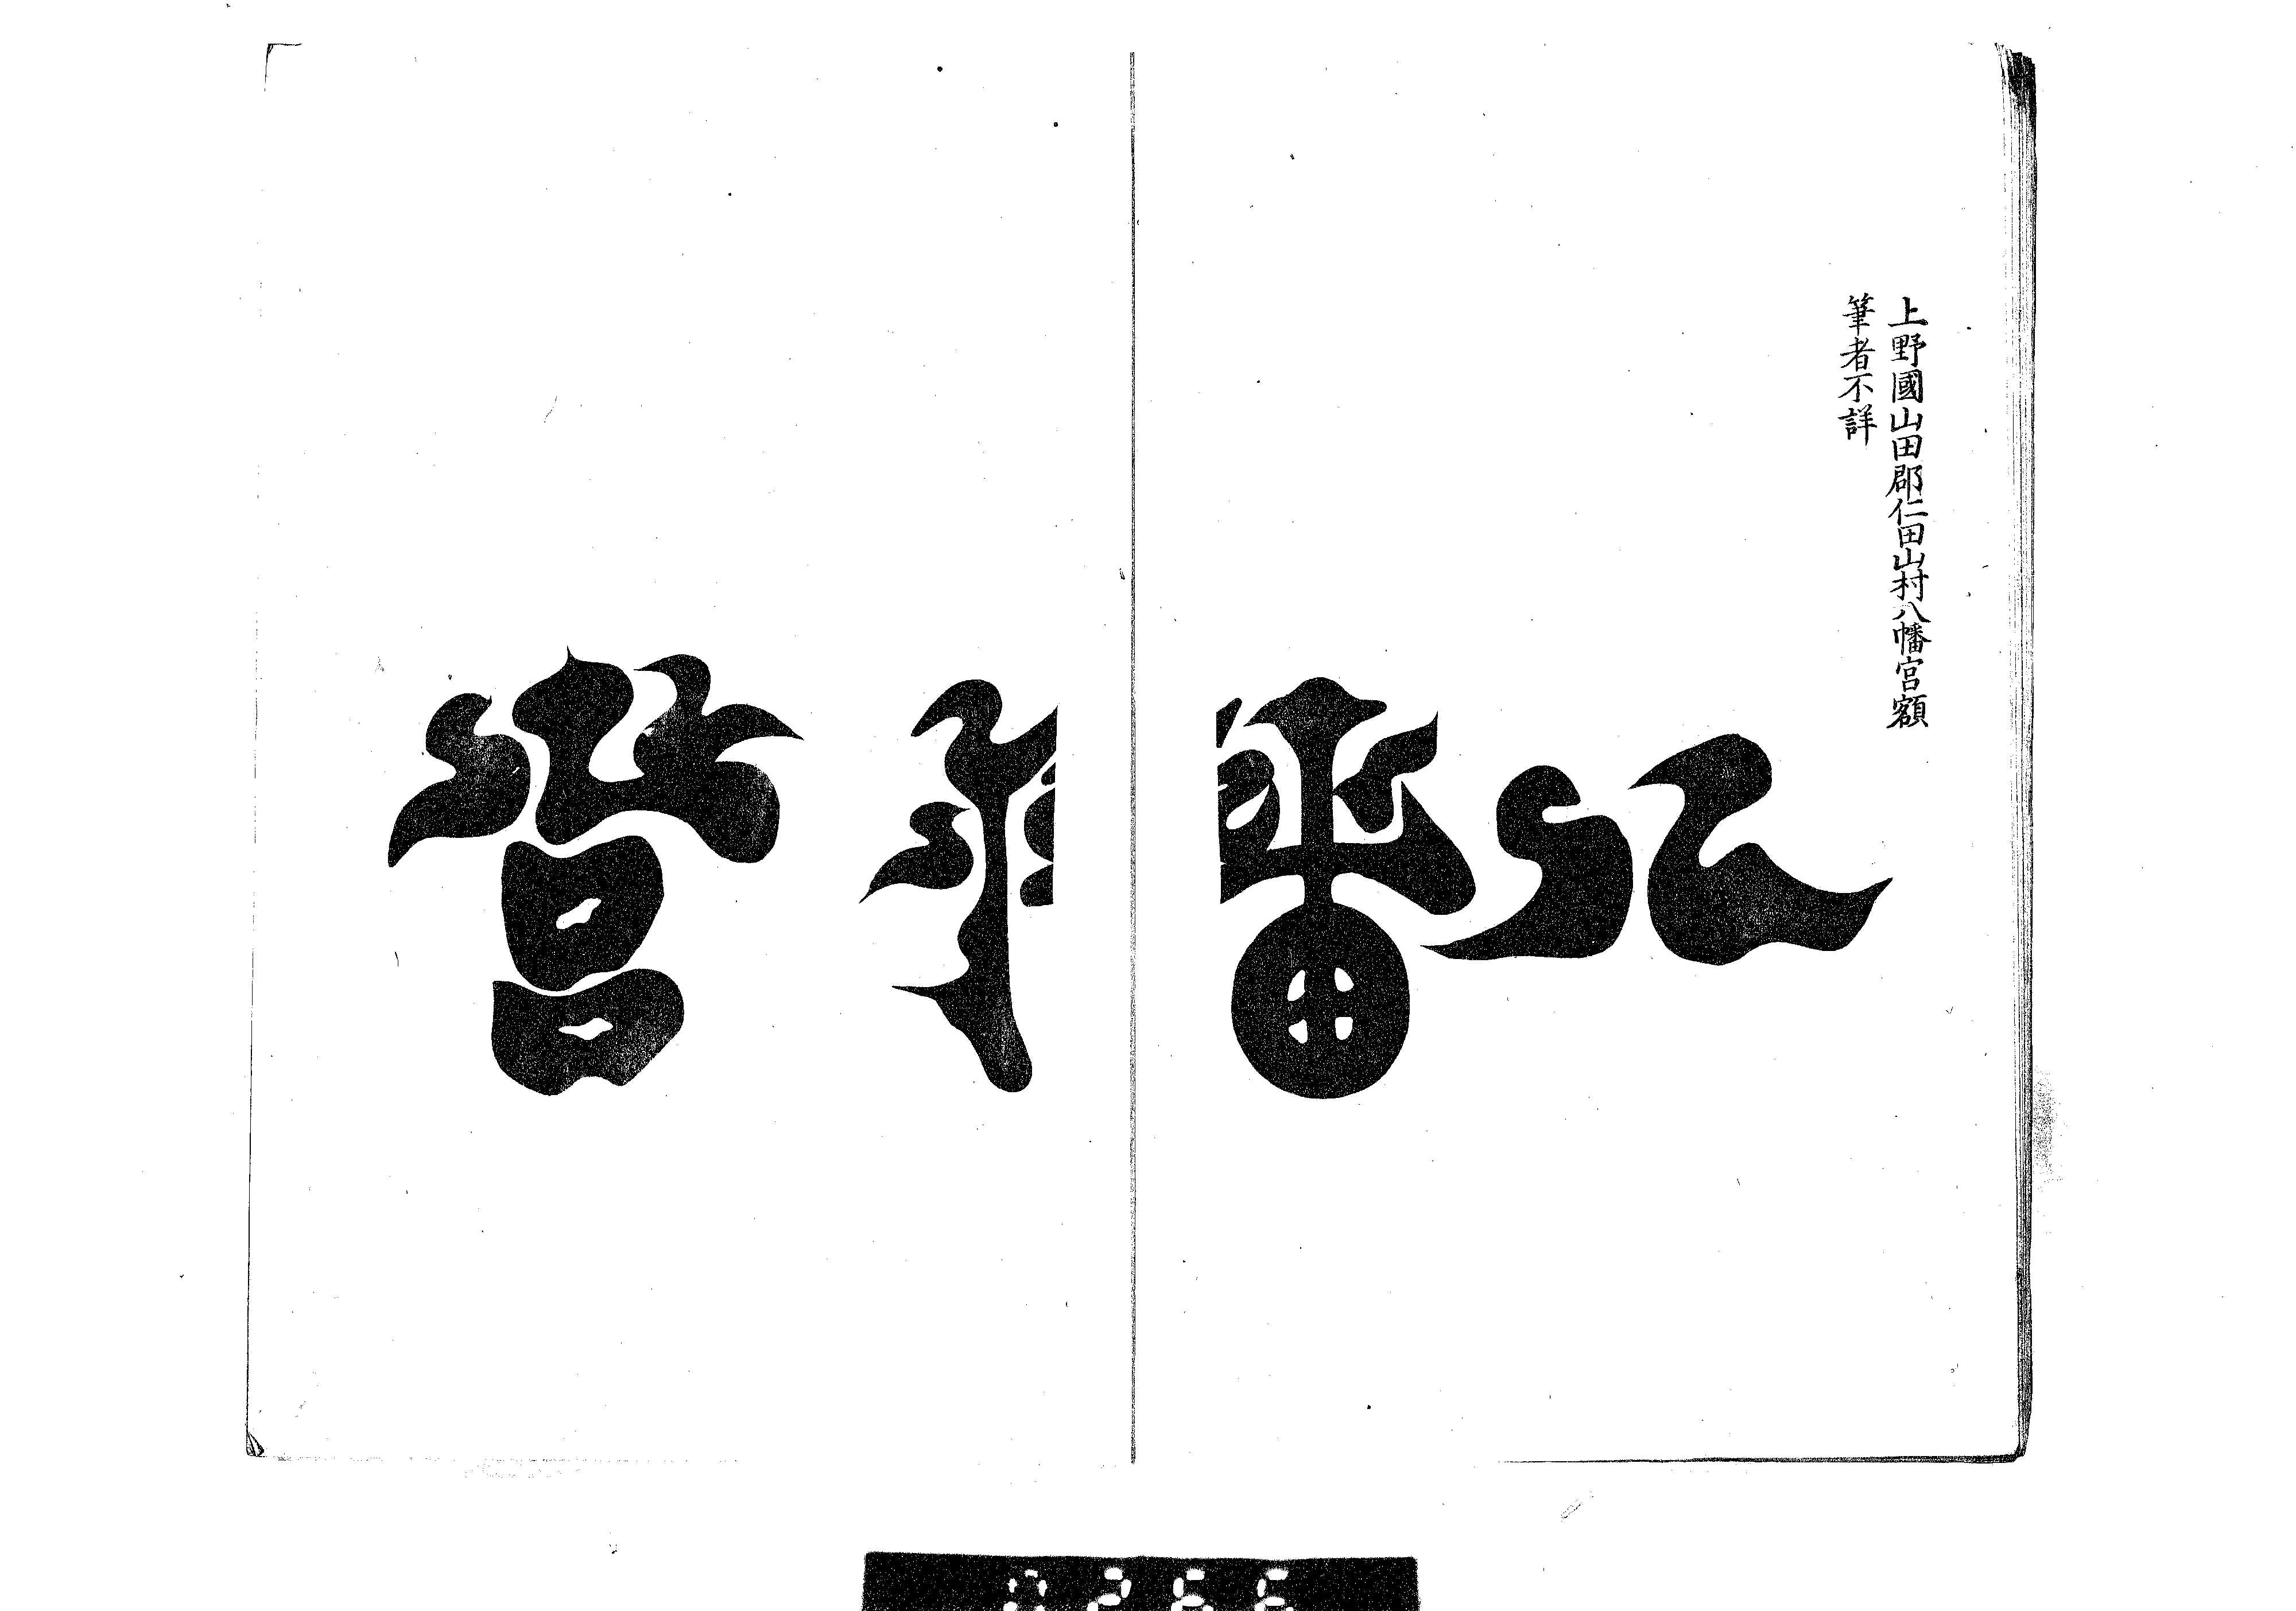 上野國山田郡仁田山村八幡宮額
筆者不詳
八幡宮